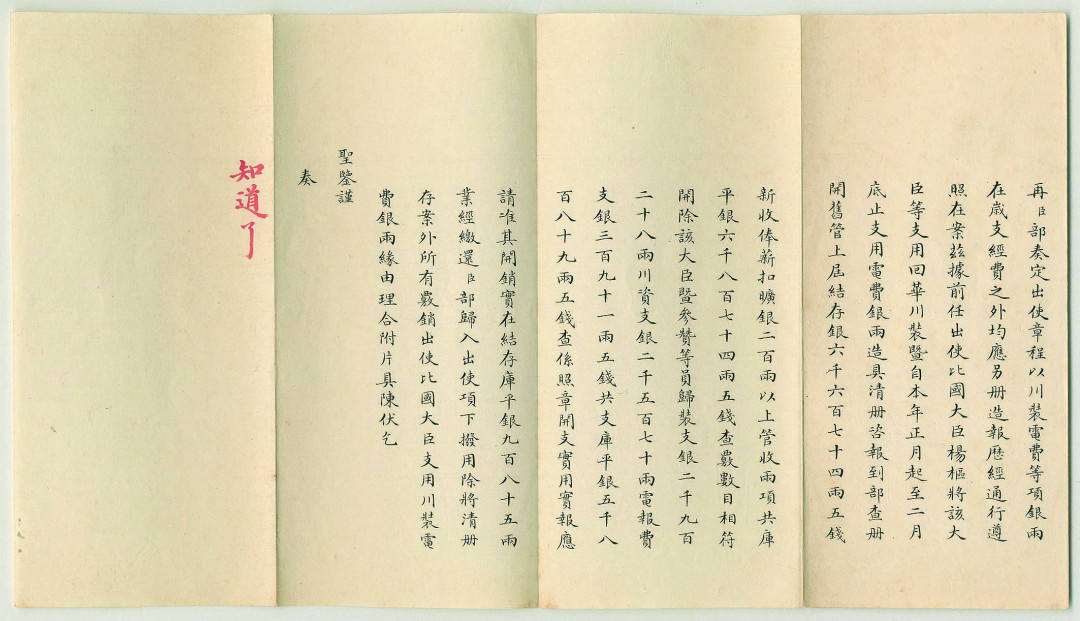 再臣部奏定出使章程以川裝電費等項銀兩
在歲支經費之外均應另册造報歷經通行遵
照在案茲據前任出使比國大臣楊樞將該大
臣等支用回華川裝暨自本年正月起至二月
底止支用電費銀兩造具清册咨報到部查册
開舊管上屆結存銀六千六百七十四兩五錢
新收俸薪扣曠銀二百兩以上管收兩項共庫
平銀六千八百七十四兩五錢查覈數目相符
開除該大臣暨參贊等員歸裝支銀二千九百
二十八兩川資支銀二千五百七十兩電報費
支銀三百九十一兩五錢共支庫平銀五千八
百八十九兩五錢查係照章開支實用實報應
請准其開銷實在結存庫平銀九百八十五兩
業經繳還臣部歸入出使項下撥用除將清册
存案外所有覈銷出使比國大臣支用川裝電
費銀兩緣由理合附片具陳伏乞
聖鑒謹
奏
知道了